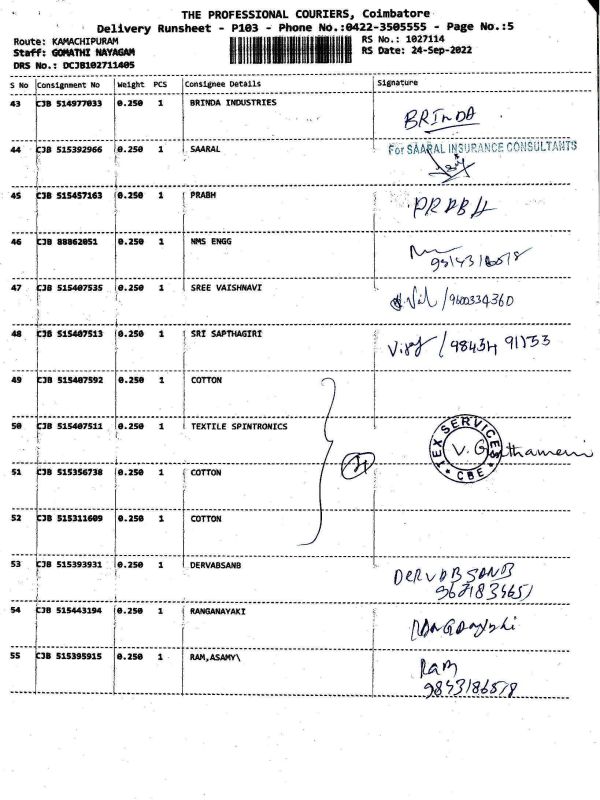 THE PROFESSIONAL COURIERS, Coimbatore
Delivery Runsheet - P103 - Phone No.:0422-3505555 - Page No.:5
Route: KAMACHIPURAM RS No.: 1027114
Staff: GOMATHI NAYAGAM RS Date: 24-Sep-2022
DRS No.: DCJB102711405
S No Consignment No Weight PCS Consignee Details Signature
43 CJB 514977033 0.250 1 BRINDA INDUSTRIES BRINDA
44 CJB 515392966 0.250 1 SAARAL For SAARAL INSURANCE CONSULTANTS
45 CJB 515457163 0.250 1 PRABH PRABH
46 CJB 88862051 0.250 1 NMS ENGG
47 CJB 515407535 0.250 1 SREE VAISHNAVI /9600334360
48 CJB 515407513 0.250 1 SRI SAPTHAGIRI Vijay / 98434 91153
49 CJB 515407592 0.250 1 COTTON
50 CJB 515407511 0.250 1 TEXTILE SPINTRONICS TEX SERVICES CBE V.
51 CJB 515356738 0.250 1 COTTON
52 CJB 515311609 0.250 1 COTTON
53 CJB 515393931 0.250 1 DERVABSANB DERVABSANB
54 CJB 515443194 0.250 1 RANGANAYAKI
55 CJB 515395915 0.250 1 RAM,ASAMY\ RAM
9843186518